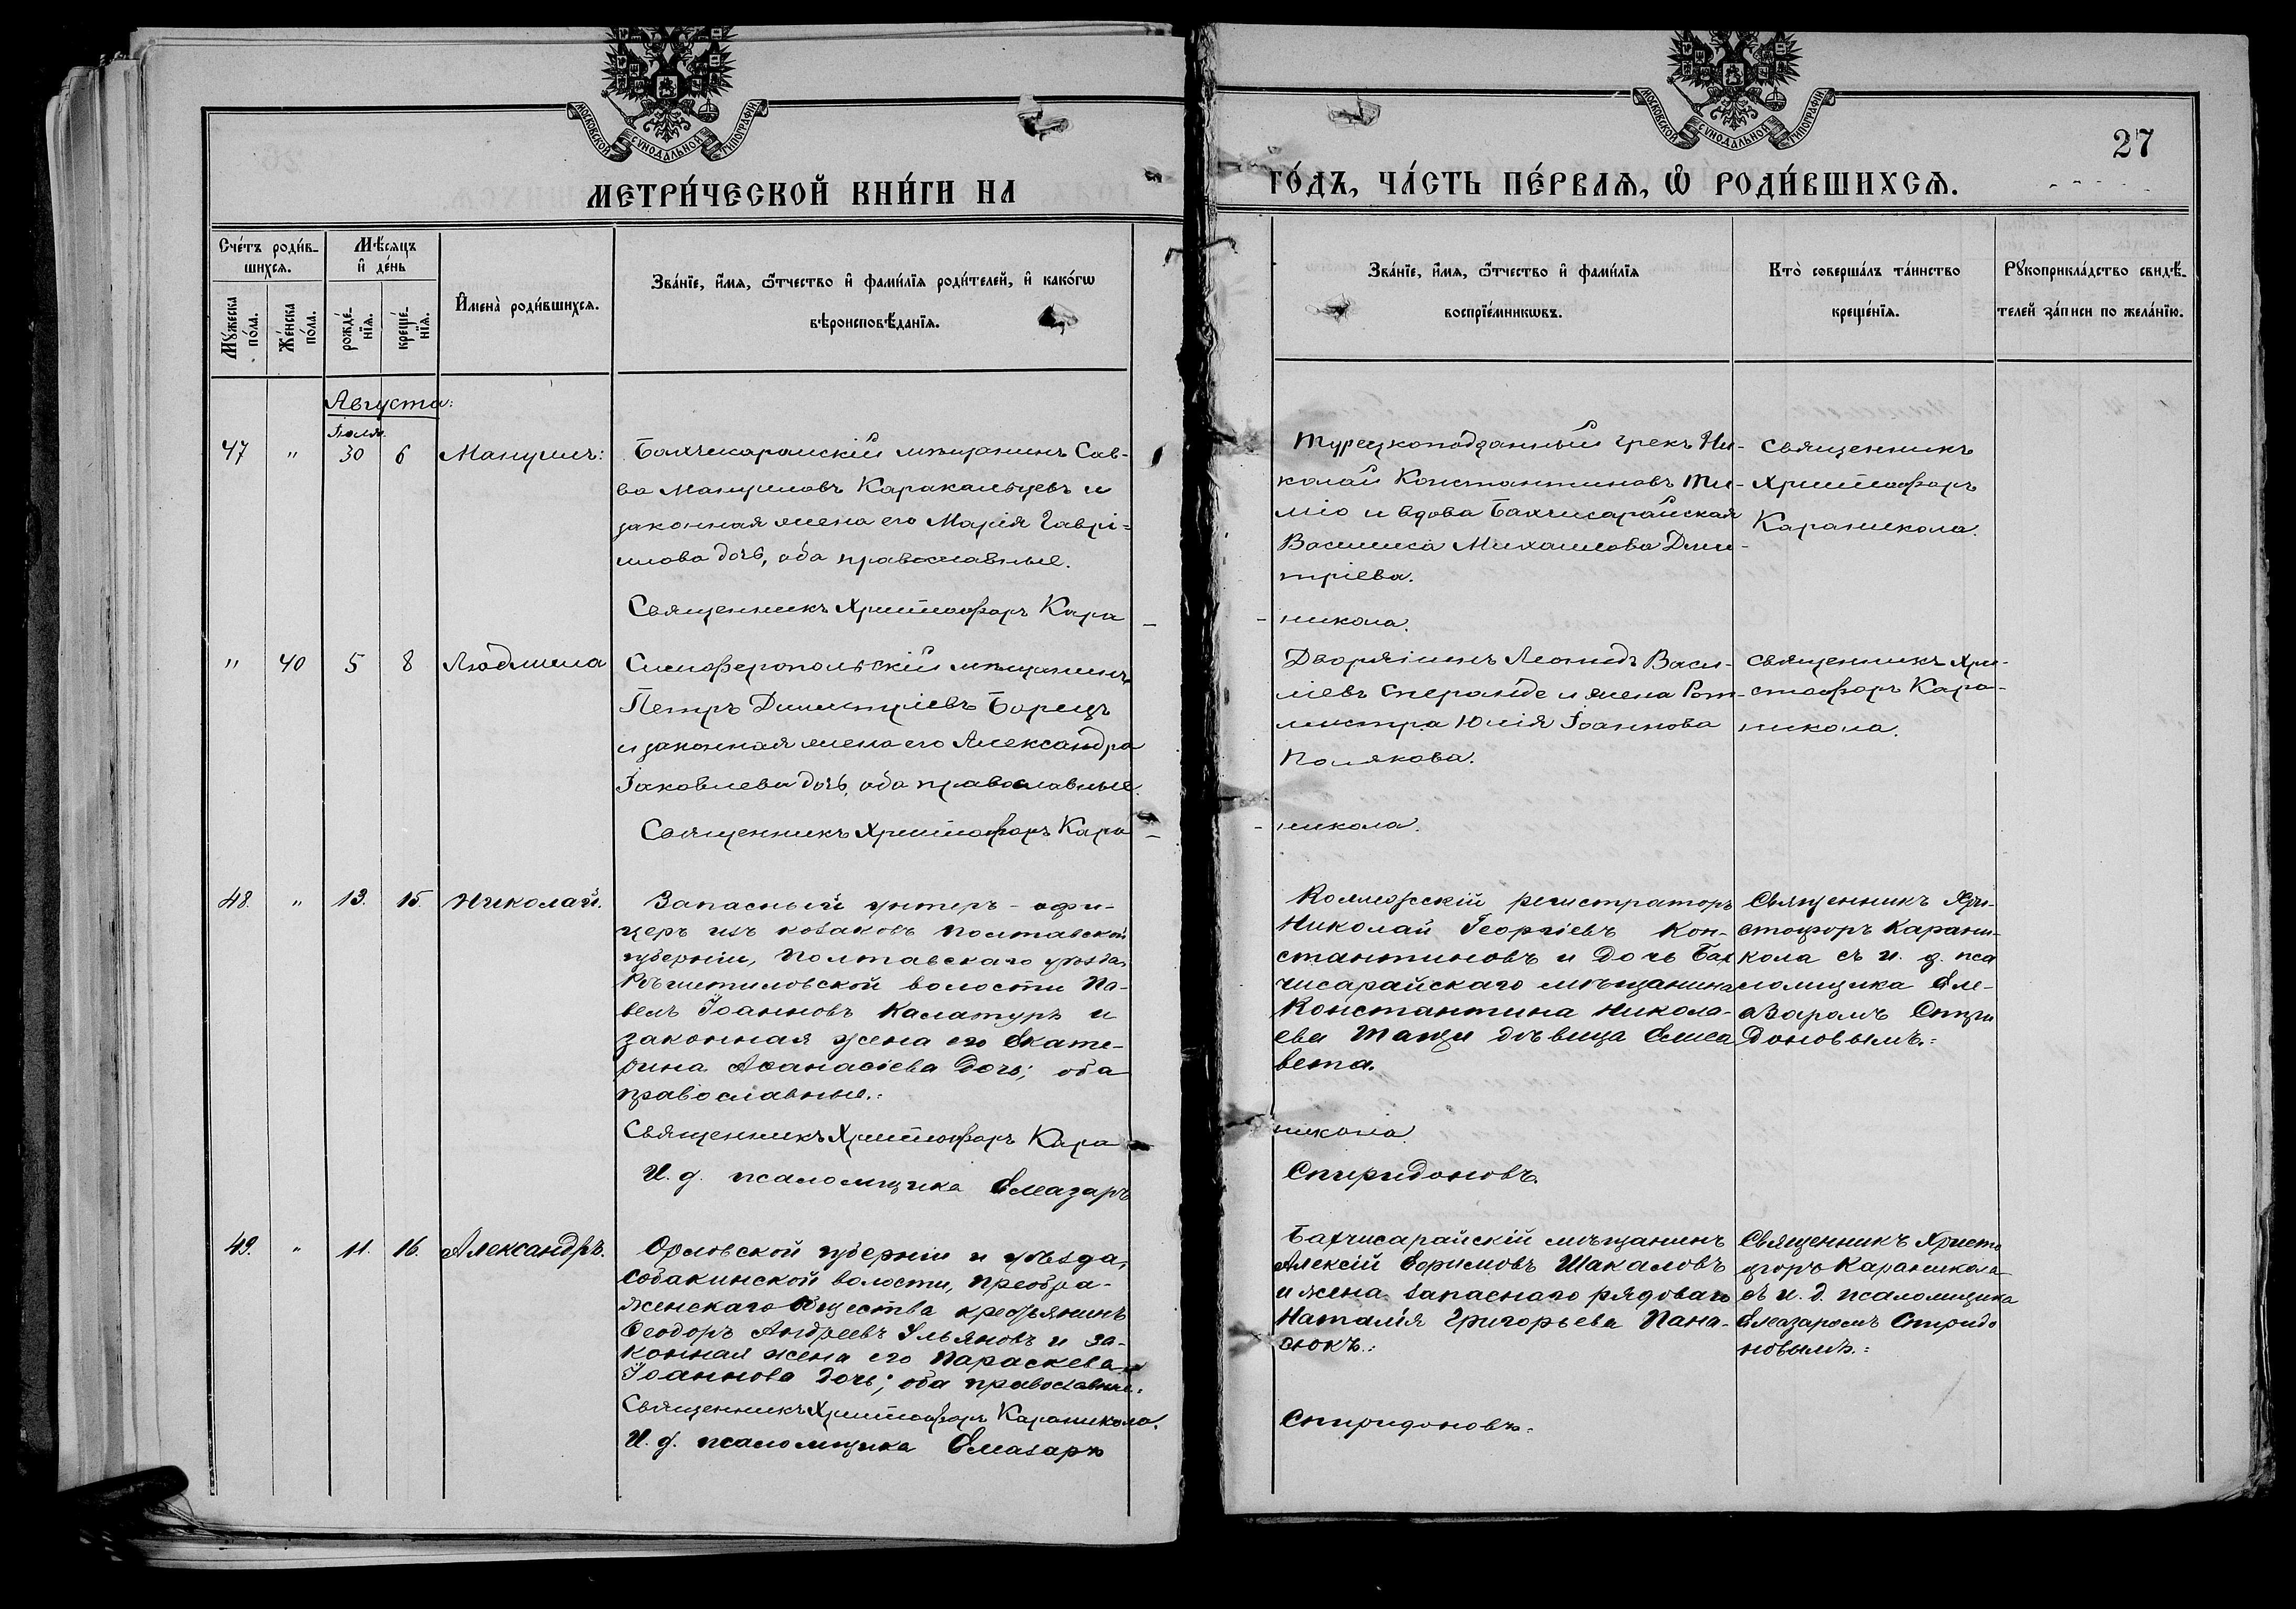 МОСКОВСКОЙ СУНОДАЛЬНОЙ ТИПОГРАФІИ
МЕТРИ́ЧЕСКОЙ КНИ́ГИ НА
Сче́тъ роди́в-
шихся.
Мѣ́сяцъ
и҆ де́нь
Мꙋ́жеска
по́ла.
Же́нска
по́ла.
рожде́-
нїя.
креще́-
нїя.
И҆мена̀ роди́вшихся.
Зва́нїе, и҆́мя, ѻ҆́тчество и҆ фами́лїя роди́телей, и҆ како́гѡ
вѣроисповѣ́данїя.
Августа:
Іюля.
47 " 30 6 Мануилъ:
Бахчисарайскій мѣщанинъ Сав-
ва Мануиловъ Каракальцевъ и
законная жена его Марія Гаврі-
илова дочь, оба православные.
Священникъ Христофоръ Кара-
" 40 5 8 Людмила
Симферопольскій мѣщанинъ
Петръ Димитріевъ Борецъ
и законная жена его Александра
Іаковлева дочь, оба православные.
Священникъ Христофоръ Кара-
48. " 13. 15. Николай.
Запасный унтеръ-офи-
церъ изъ козаковъ Полтавской
губерніи, Полтавскаго уѣзда,
волости Па-
велъ Іоанновъ Калатуръ и
законная жена его Екате-
рина Аѳанасіева дочь; оба
православные.:
Священникъ Христофоръ Кара
И. д. псаломщика Елеазаръ
49. " 11. 16. Александръ.
Орловской губерніи и уѣзда,
Собакинской волости, Преобра-
женскаго общества крестьянинъ
Ѳеодоръ Андреевъ Ульяновъ и за-
конная жена его Параскева
Іоаннова дочь; оба православные:
Священникъ Христофоръ Караникола.
И. д. псаломщика Елеазаръ
МОСКОВСКОЙ СУНОДАЛЬНОЙ ТИПОГРАФІИ
27
ГО́ДЪ, ЧА́СТЬ ПЕ́РВАЯ, Ѡ҆ РОДИ́ВШИХСЯ.
Зва́нїе, и҆́мя, ѻ҆́тчество и҆ фами́лїя
воспрїе́мникѡвъ.
Кто̀ соверша́лъ та́инство
креще́нїя.
Рꙋкоприкла́дство свидѣ́-
телей за́писи по жела́нїю.
Турецкоподданный грекъ Ни-
колай Константиновъ Ти-
міо и вдова Бахчисарайская
Василиса Михаилова Дми-
тріева.
никола.
Священникъ
Христофоръ
Караникола.
Дворянинъ Леонидъ Васи-
ліевъ Сперанде и жена Рот-
мистра Юлія Іоаннова
Полякова.
никола.
Священникъ Хри-
стофоръ Кара-
никола.
Коллежскій регистраторъ
Николай Георгіевъ Кон-
стантиновъ и дочь Бах
чисарайскаго мѣщанина
Константина Никола-
ева дѣвица Елиса
вета.
никола
Спиридоновъ.
Священникъ Хри-
стофоръ Карани-
кола съ и. д. пса
ломщика Еле-
азаромъ Спири
доновымъ.:
Бахчисарайскій мѣщанинъ
Алексій Ефимовъ Шакаловъ
и жена запаснаго рядоваго
Наталія Григорьева Пана-
сюкъ.:
Спиридоновъ.
Священникъ Христо
форъ Караникола
съ и. д. псаломщика
Елеазаромъ Спиридо
новымъ.: